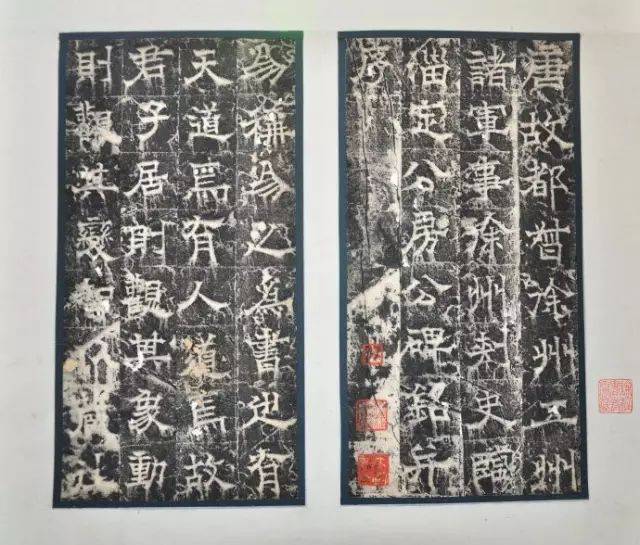 唐故都督徐州五州
諸軍事徐州刺史臨
淄定公房公碑銘并
序
易稱易之爲書也有
天道焉有人道焉故
君子居則觀其象動
則觀其變